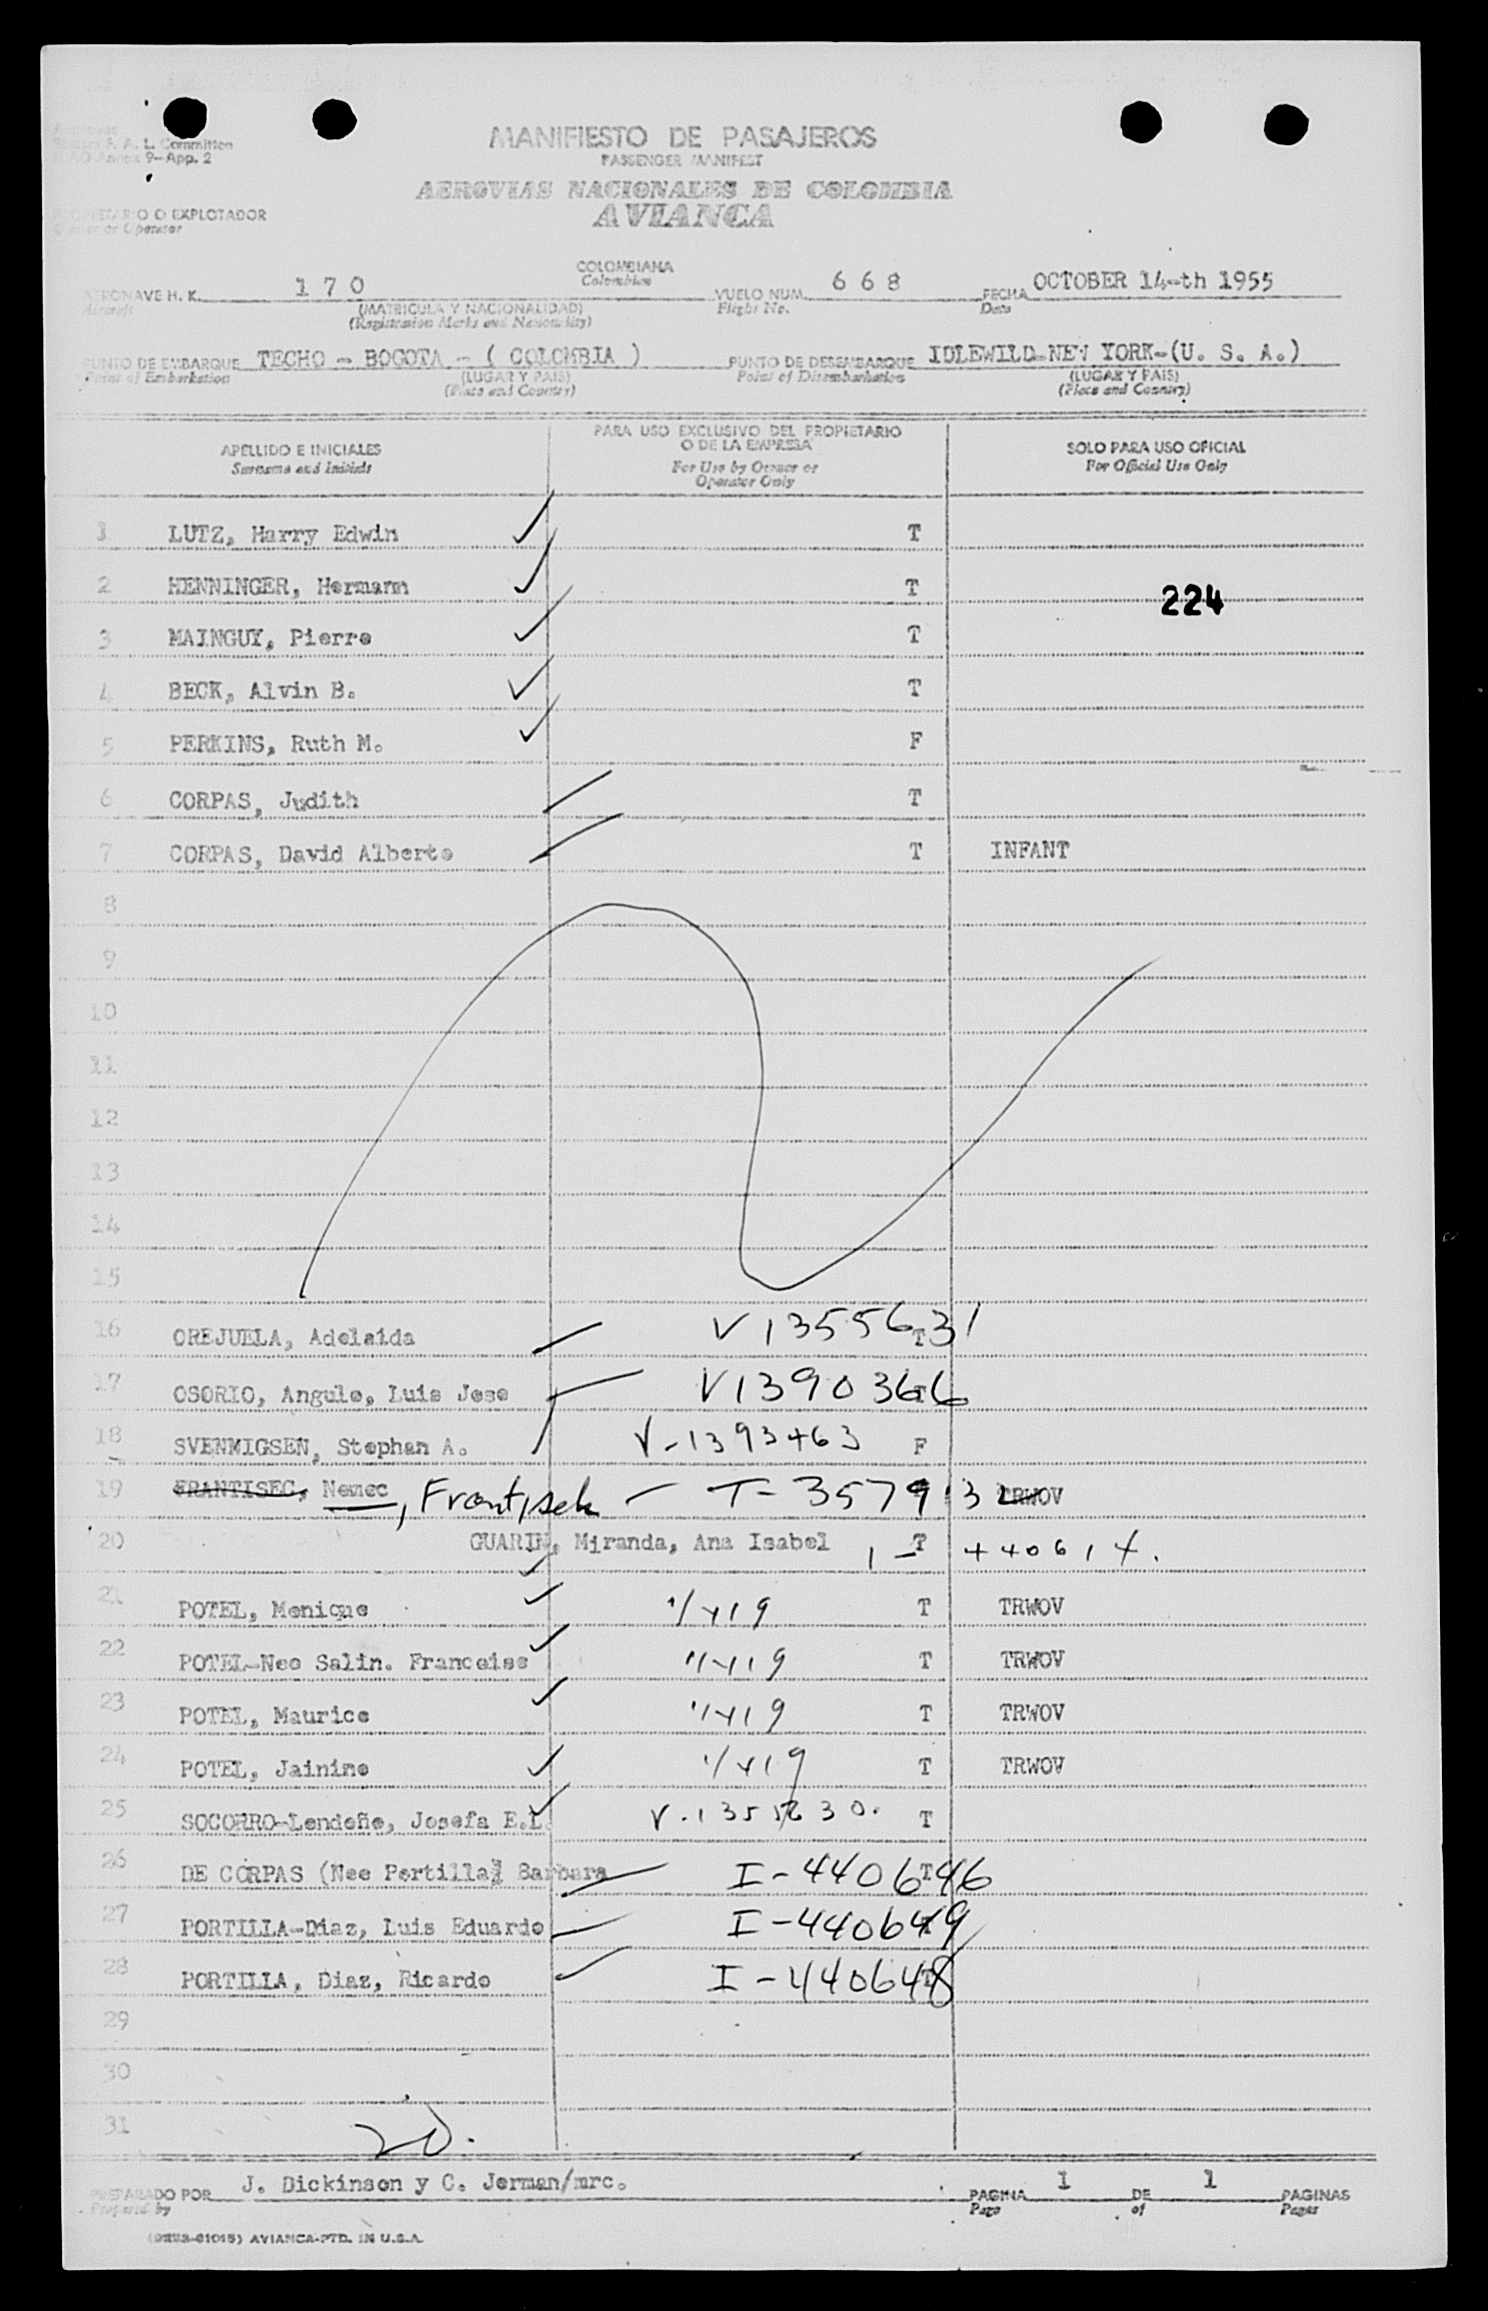 L. Committee
9-App. 2
MANIFIESTO DE PASAJEROS
PASSENGER MANIFEST
AEROVIAS NACIONALES DE COLOMBIA
AVIANCA
O EXPLOTADOR
or Operator
AERONAVE H. K. 170 COLOMBIANA VUELO NUM. 668 FECHA OCTOBER 14-th 1955
Aircraft Colombian Flight No. Date
(MATRICULA Y NACIONALIDAD)
(Registration Marks and Nationality)
PUNTO DE EMBARQUE TECHO - BOGOTA - ( COLOMBIA ) PUNTO DE DESEMBARQUE IDLEWILD-NEW YORK-(U. S. A.)
Point of Embarkation (LUGAR Y PAIS) Point of Disembarkation (LUGAR Y PAIS)
(Place and Country) (Place and Country)
APELLIDO E INICIALES PARA USO EXCLUSIVO DEL PROPIETARIO O DE LA EMPRESA SOLO PARA USO OFICIAL
Surname and Initials For Use by Owner or Operator Only For Official Use Only
1 LUTZ, Harry Edwin T
2 HENNINGER, Hermann T
224
3 MAINGUY, Pierre T
4 BECK, Alvin B. T
5 PERKINS, Ruth M. F
6 CORPAS, Judith T
7 CORPAS, David Alberto T INFANT
8
9
10
11
12
13
14
15
16 OREJUELA, Adelaida V1355631 T
17 OSORIO, Angulo, Luis Jose V1390366 T
18 SVENMIGSEN, Stephan A. V-1393463 F
19 FRANTISEC, Nemec, Frantisek - T-357913 TRWOV
20 GUARIN, Miranda, Ana Isabel T 440614.
21 POTEL, Monique T TRWOV
22 POTEL-Nee Salin. Francoise T TRWOV
23 POTEL, Maurice T TRWOV
24 POTEL, Jainine T TRWOV
25 SOCORRO-Lendoño, Josefa E.L. V.1355630. T
26 DE CORPAS (Nee Portilla) Barbara I-440646 T
27 PORTILLA-Diaz, Luis Eduardo I-440649
28 PORTILLA, Diaz, Ricardo I-440648 T
29
30
31
20.
PREPARADO POR J. Dickinson y C. Jerman/mrc. PAGINA 1 DE 1 PAGINAS
Prepared by Page of Pages
AVIANCA-PTD. IN U.S.A.